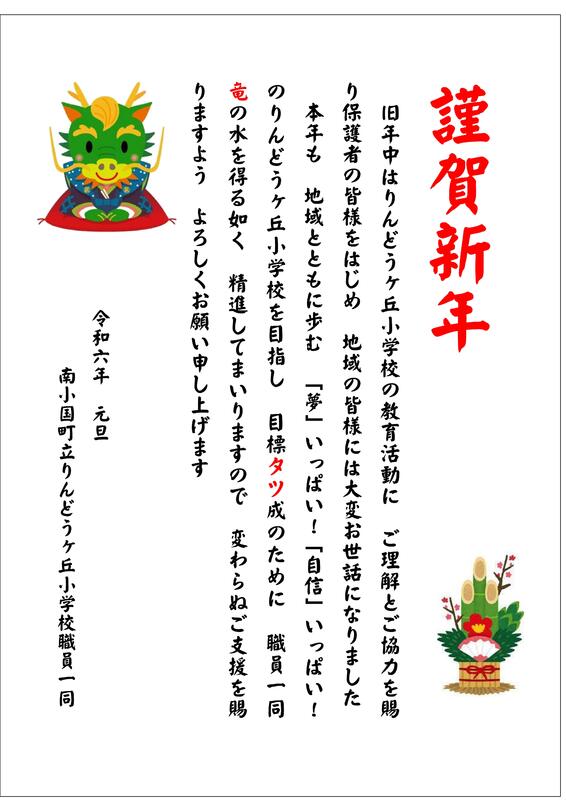 謹賀新年
旧年中はりんどうヶ丘小学校の教育活動に　ご理解とご協力を賜
り保護者の皆様をはじめ　地域の皆様には大変お世話になりました
本年も　地域とともに歩む　「夢」いっぱい！「自信」いっぱい！
のりんどうヶ丘小学校を目指し　目標タツ成のために　職員一同
竜の水を得る如く　精進してまいりますので　変わらぬご支援を賜
りますよう　よろしくお願い申し上げます
令和六年　元旦
南小国町立りんどうヶ丘小学校職員一同